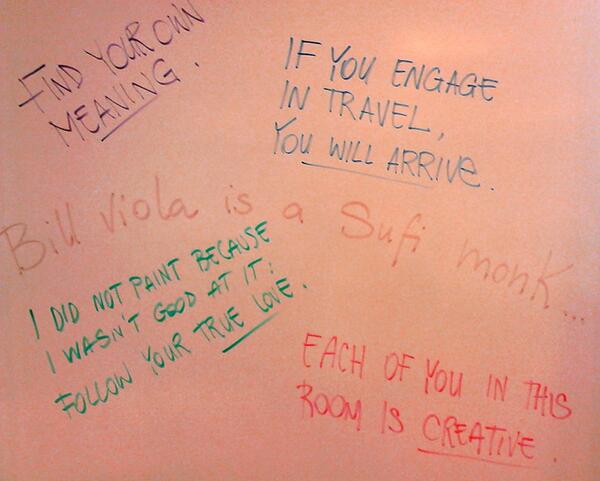 FIND YOUR OWN
MEANING.
IF YOU ENGAGE
IN TRAVEL,
YOU WILL ARRIVE.
Bill Viola is a Sufi monk...
I DID NOT PAINT BECAUSE
I WASN'T GOOD AT IT:
FOLLOW YOUR TRUE LOVE.
EACH OF YOU IN THIS
ROOM IS CREATIVE.